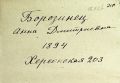 Бородинец
Анна Дмитриевна
1894
Херсонская 203